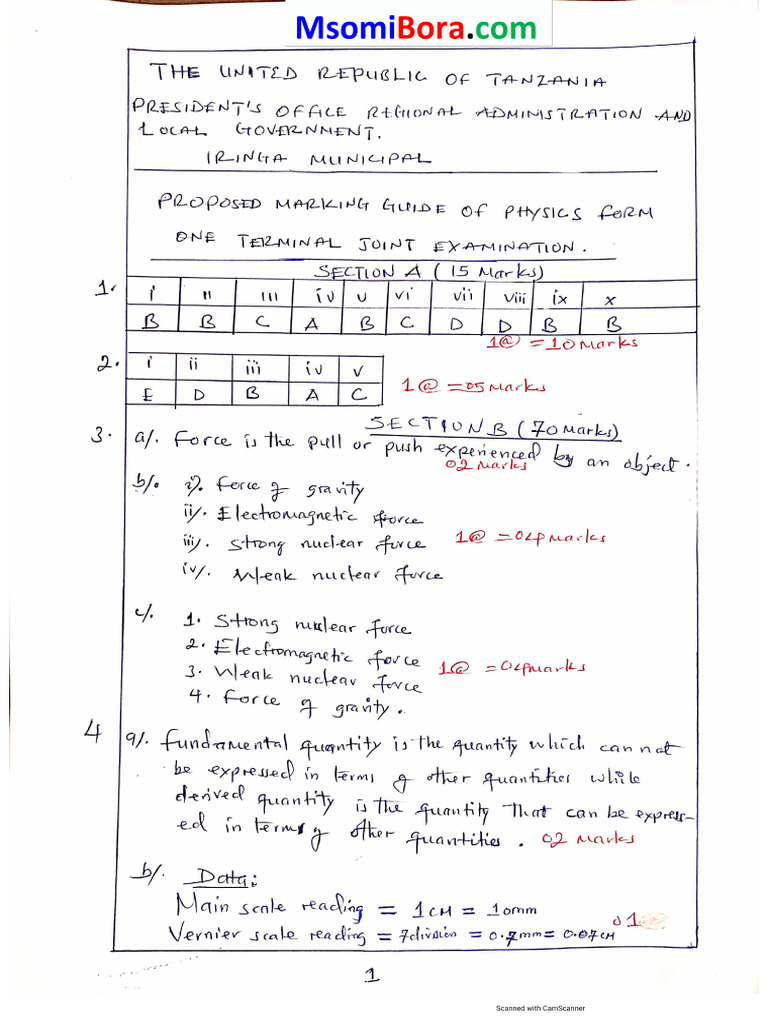 MsomiBora.com
THE UNITED REPUBLIC OF TANZANIA
PRESIDENT'S OFFICE REGIONAL ADMINISTRATION AND
LOCAL GOVERNMENT.
IRINGA MUNICIPAL
PROPOSED MARKING GUIDE OF PHYSICS FORM
ONE TERMINAL JOINT EXAMINATION.
SECTION A (15 Marks)
1. i ii iii iv v vi vii viii ix x
B B C A B C D D B B
1@ = 10 Marks
2. i ii iii iv v
E D B A C
1@ = 05 Marks
SECTION B (70 Marks)
3. a/. Force is the pull or push experienced by an object.
02 Marks
b/. i/. Force of gravity
ii/. Electromagnetic force
iii/. Strong nuclear force 1@ = 04 marks
iv/. Weak nuclear force
c/. 1. Strong nuclear force
2. Electromagnetic force
3. Weak nuclear force 1@ = 04 marks
4. Force of gravity.
4 a/. Fundamental quantity is the quantity which can not
be expressed in terms of other quantities while
derived quantity is the quantity that can be express-
ed in terms of other quantities. 02 Marks
b/. Data:
Main scale reading = 1cm = 10mm
Vernier scale reading = 7division = 0.7mm = 0.07cm 01
1
Scanned with CamScanner